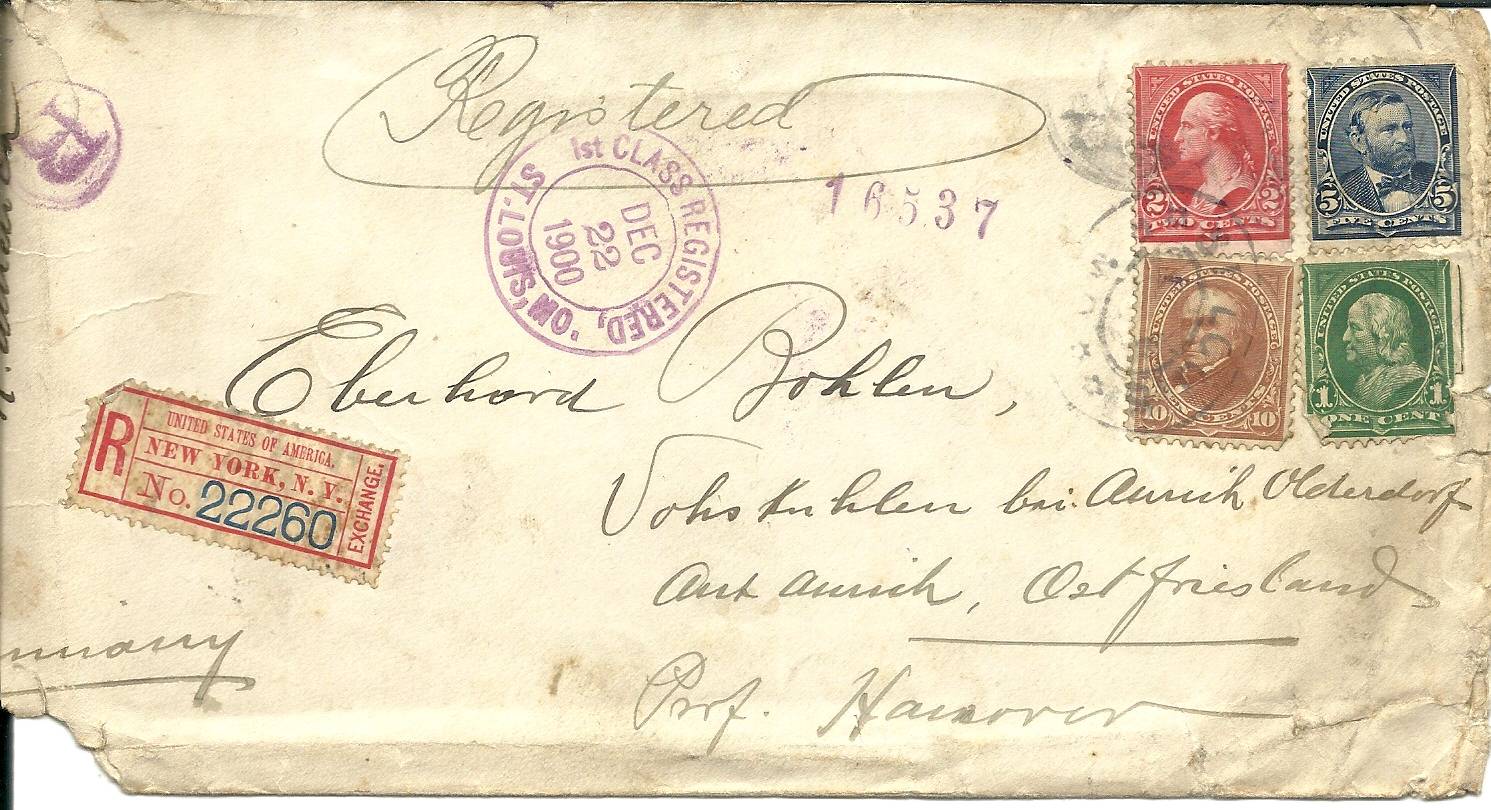 R
Registered
1st CLASS REGISTERED,
ST. LOUIS, MO.
DEC
22
1900
16537
UNITED STATES POSTAGE
2 2
TWO CENTS
UNITED STATES POSTAGE
5 5
FIVE CENTS
UNITED STATES POSTAGE
10 10
TEN CENTS
UNITED STATES POSTAGE
1 1
ONE CENT
Eberhard Bohlen,
R
UNITED STATES OF AMERICA.
NEW YORK, N. Y.
No. 22260
EXCHANGE.
bei Aurich Olderdorf
Amt Aurich, Ostfriesland
Prof. Hannover